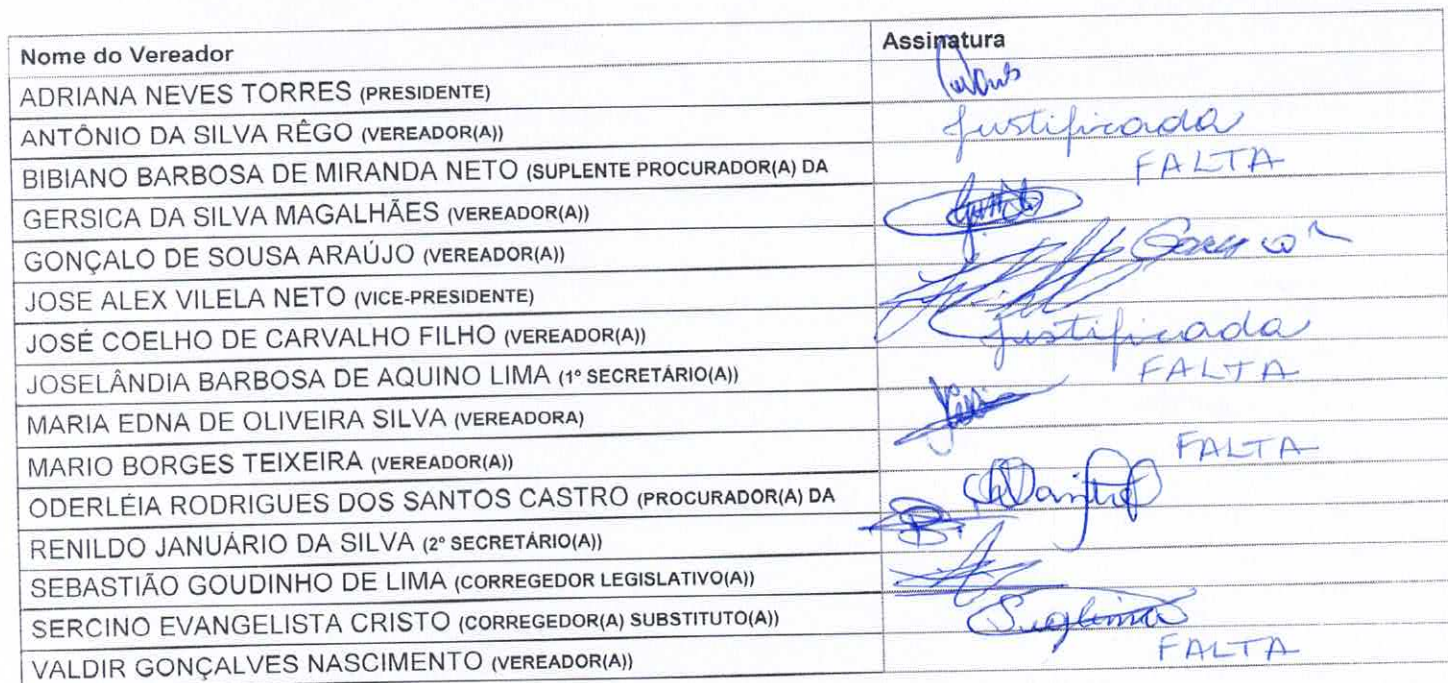 Nome do Vereador Assinatura
ADRIANA NEVES TORRES (PRESIDENTE)
ANTÔNIO DA SILVA RÊGO (VEREADOR(A)) Justificada
BIBIANO BARBOSA DE MIRANDA NETO (SUPLENTE PROCURADOR(A) DA FALTA
GERSICA DA SILVA MAGALHÃES (VEREADOR(A))
GONÇALO DE SOUSA ARAÚJO (VEREADOR(A))
JOSE ALEX VILELA NETO (VICE-PRESIDENTE)
JOSÉ COELHO DE CARVALHO FILHO (VEREADOR(A)) Justificada
JOSELÂNDIA BARBOSA DE AQUINO LIMA (1º SECRETÁRIO(A)) FALTA
MARIA EDNA DE OLIVEIRA SILVA (VEREADORA)
MARIO BORGES TEIXEIRA (VEREADOR(A)) FALTA
ODERLÉIA RODRIGUES DOS SANTOS CASTRO (PROCURADOR(A) DA
RENILDO JANUÁRIO DA SILVA (2º SECRETÁRIO(A))
SEBASTIÃO GOUDINHO DE LIMA (CORREGEDOR LEGISLATIVO(A))
SERCINO EVANGELISTA CRISTO (CORREGEDOR(A) SUBSTITUTO(A))
VALDIR GONÇALVES NASCIMENTO (VEREADOR(A)) FALTA